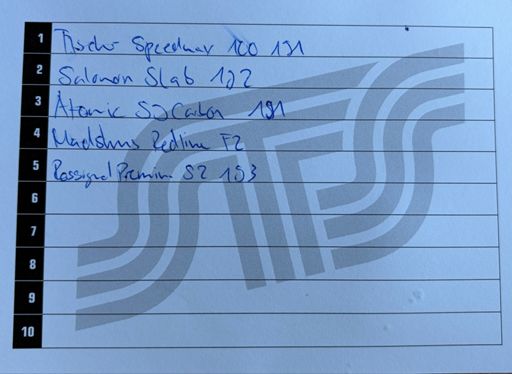 1 Fischer Speedmax 120 191
2 Salomon Slab 192
3 Atomic S2 Carbon 191
4 Madshus Redline F2
5 Rossignol Premium S2 193
6
7
8
9
10
STS